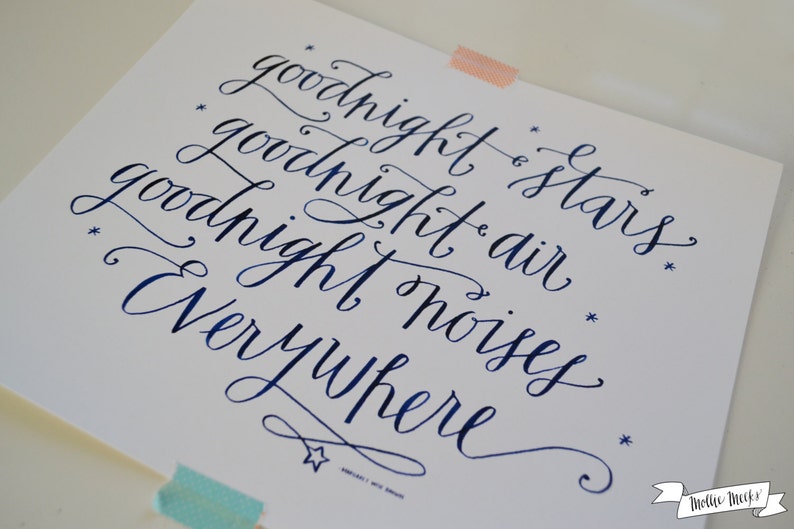 goodnight stars
goodnight air
goodnight noises
Everywhere
Mollie Meeks